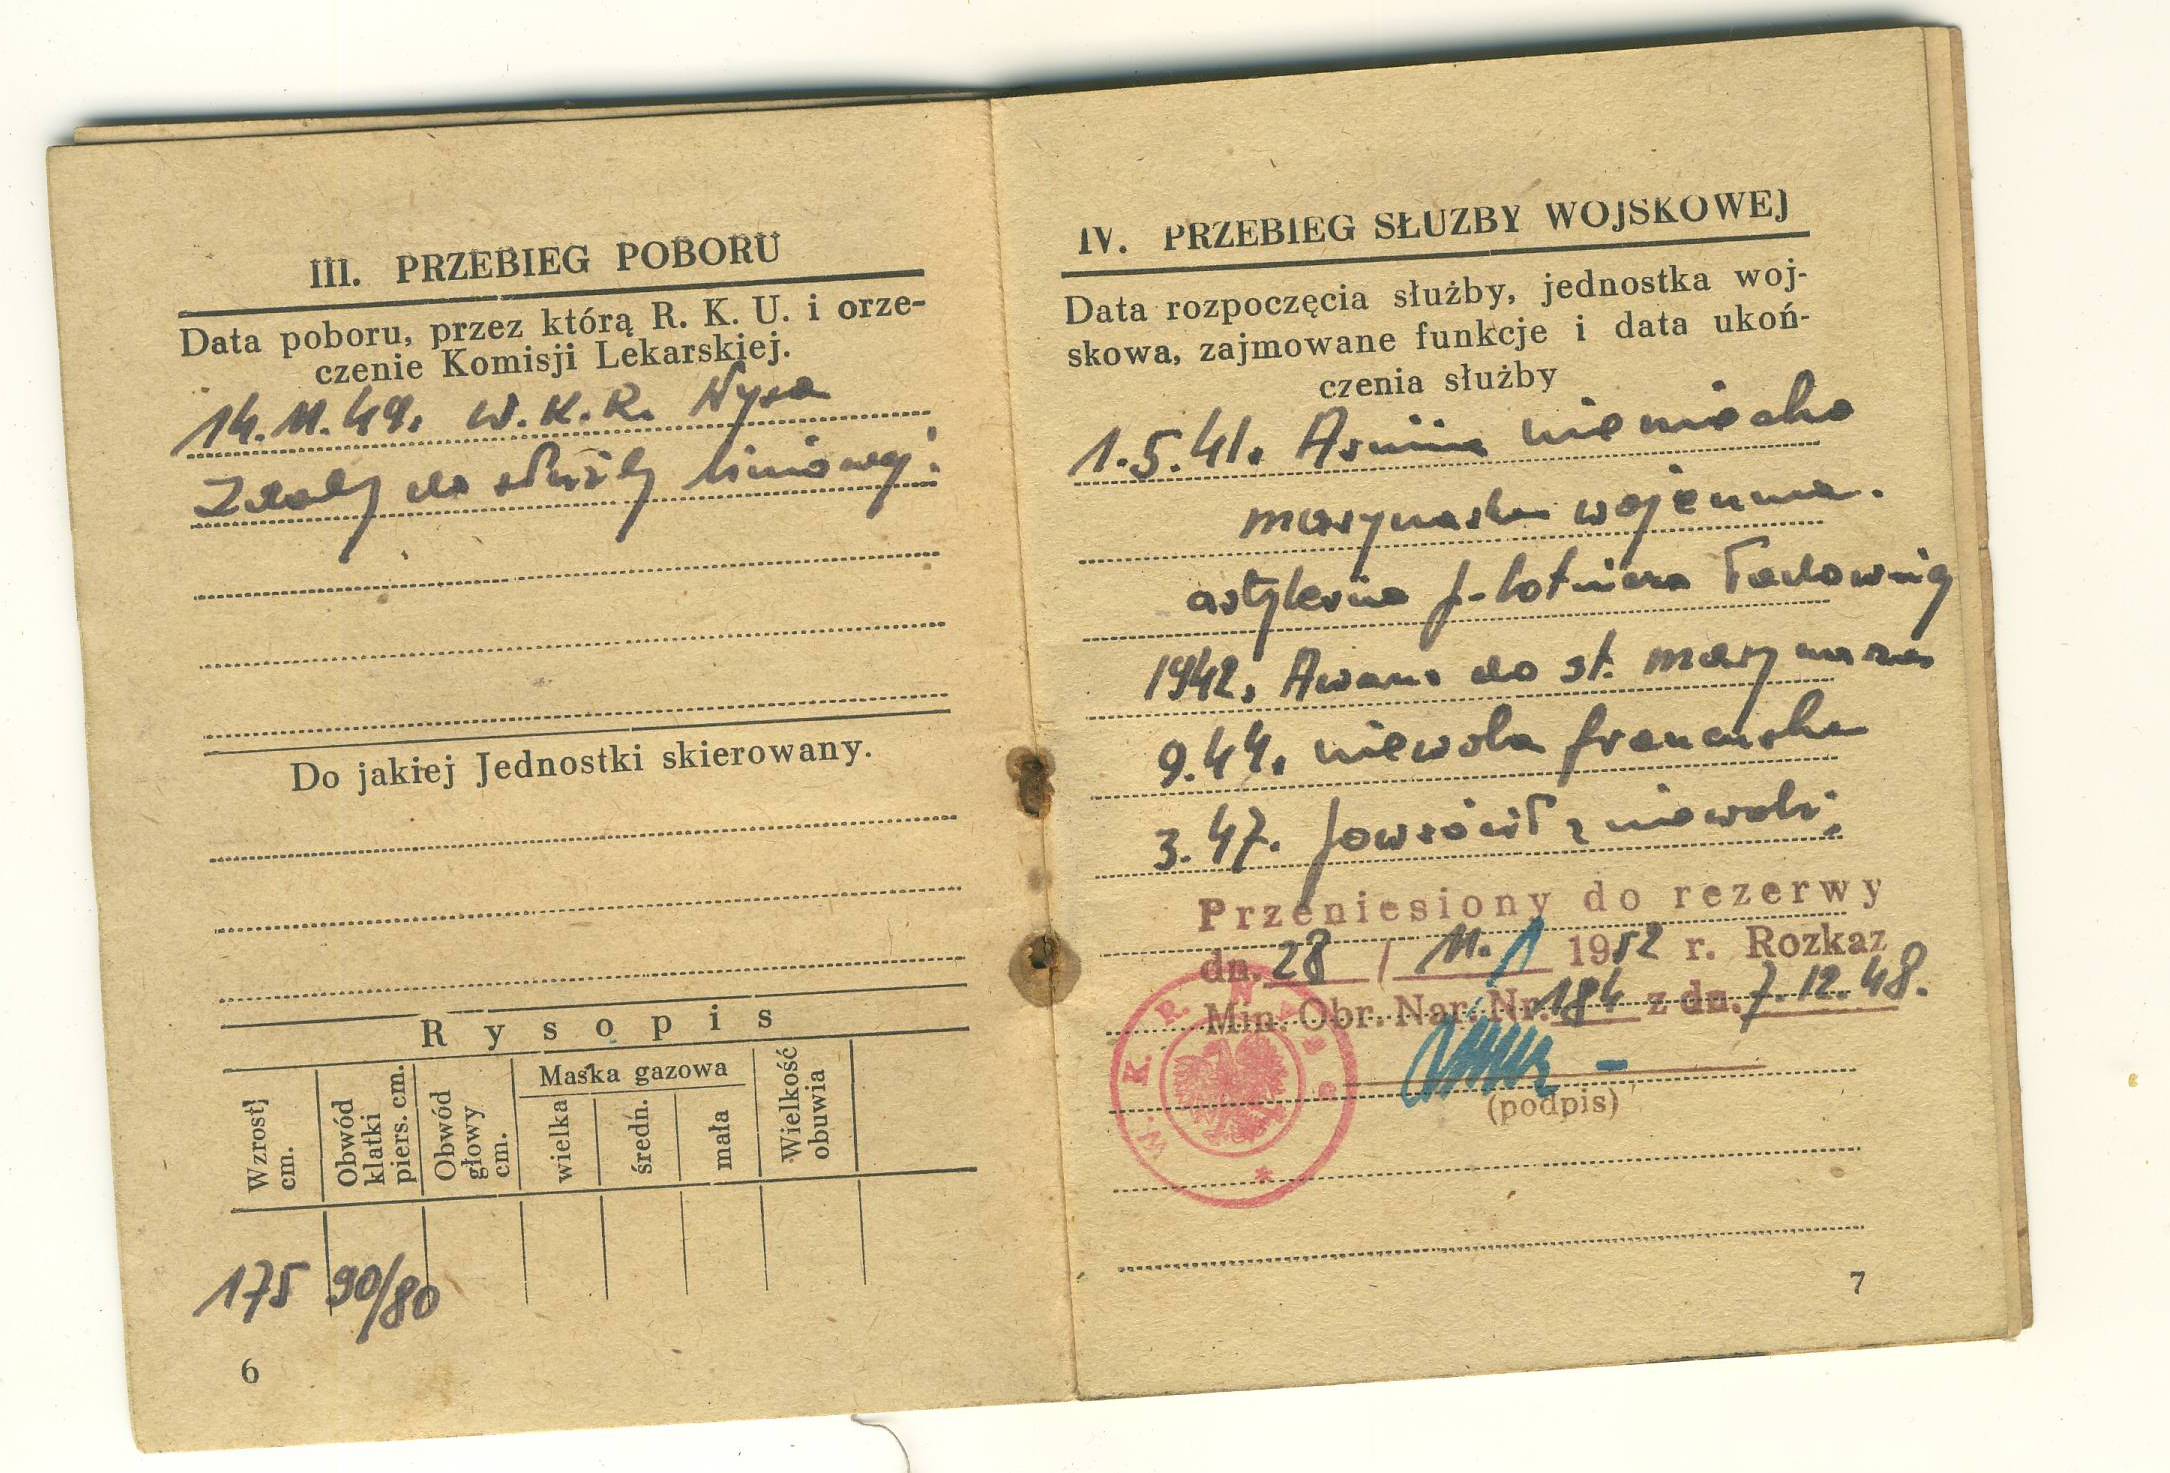 III. PRZEBIEG POBORU
Data poboru, przez którą R. K. U. i orze-
czenie Komisji Lekarskiej.
14. 11. 49. W. K. R. Nysa
Zdolny do służby liniowej.
Do jakiej Jednostki skierowany.
Rysopis
Wzrost cm.
Obwód klatki piers. cm.
Obwód głowy cm.
Maska gazowa
wielka
średn.
mała
Wielkość obuwia
175 90/80
6
IV. PRZEBIEG SŁUZBY WOJSKOWEJ
Data rozpoczęcia służby, jednostka woj-
skowa, zajmowane funkcje i data ukoń-
czenia służby
1. 5. 41. Armia niemiecka
marynarka wojenna.
artyleria p-lotnicza ładowniczy
1942. Awans do st. marynarza
9. 44. niewola francuska
3. 47. powrócił z niewoli.
Przeniesiony do rezerwy
dn. 28 / 11. 1952 r. Rozkaz
Min. Obr. Nar. Nr. 184 z dn. 7. 12. 48.
(podpis)
W. K. R.
7